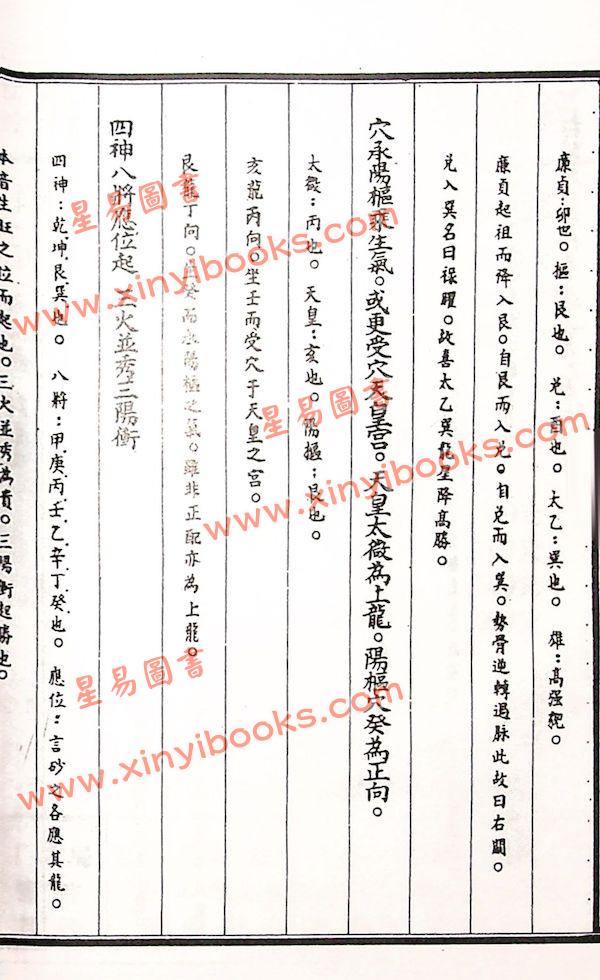 廉貞：卯也。樞：艮也。兌：酉也。太乙：巽也。雄：高强貌。
廉貞起祖而降入艮。自艮而入兌。自兌而入巽。勢骨逆轉過脉此故曰右關。
兌入巽名曰祿曜。故喜太乙巽龍星降高勝。
穴承陽樞乘生氣。或更受穴天皇宫。天皇太微為上龍。陽樞穴癸為正向。
太微：丙也。天皇：亥也。陽樞：艮也。
亥龍丙向。坐壬而受穴于天皇之宫。
艮龍丁向。坐癸而乘陽樞之氣。雖非正配亦為上龍。
四神八將應位起。三火並秀三陽衝
四神：乾坤艮巽也。八將：甲庚丙壬乙辛丁癸也。應位：言砂之各應其龍。
本音生旺之位而起也。三火並秀為貴。三陽衝起勝也。
星易圖書
www.xinyibooks.com
星易圖書
www.xinyibooks.com
星易圖書
www.xinyibooks.com